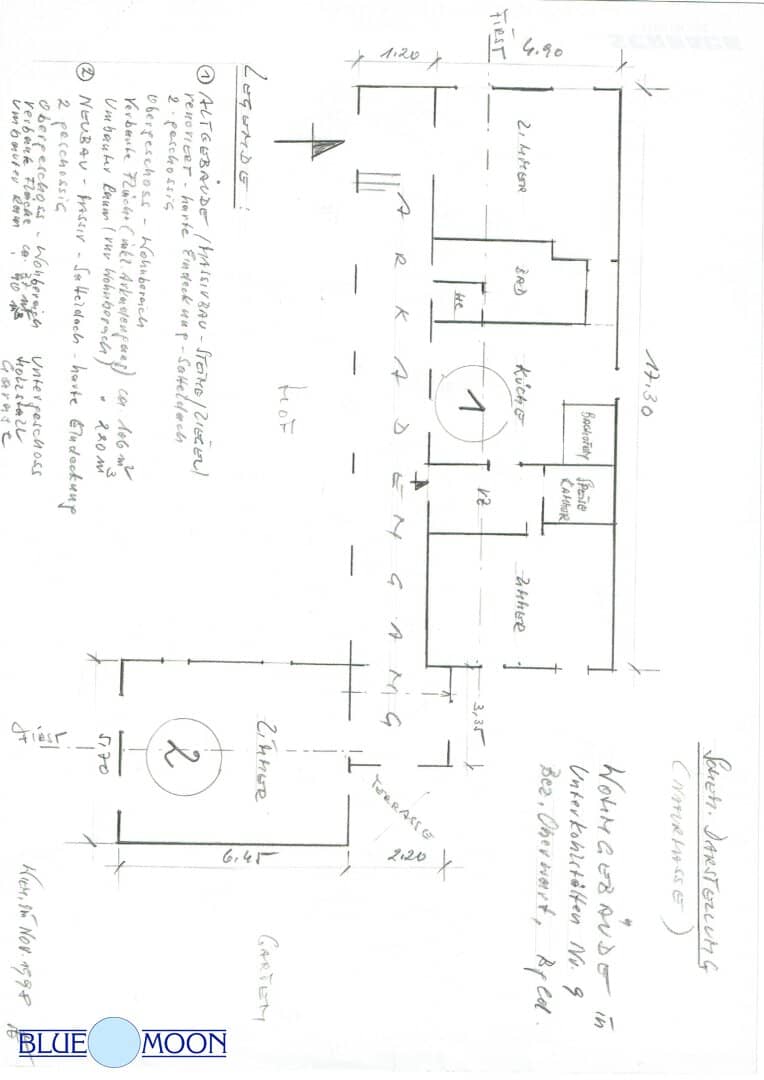 SCHEM. DARSTELLUNG
(NATURMASSE)
WOHNGEBÄUDE in
Unterkohlstätten Nr. 9
Bez. Oberwart, Bgld.
17.30
4.90
FIRST
1.20
ZIMMER
BAD
WC
KÜCHE
1
BACKOFEN
SPEIS
KAMMER
VZ
ZIMMER
ARKADENGANG
3.35
HOF
TERRASSE
ZIMMER
2
5.70
6.45
2.20
GARTEN
LEGENDE:
① ALTGEBÄUDE / MASSIVBAU - STEINE / ZIEGEL /
renoviert - harte Eindeckung - Satteldach
2-geschossig
Obergeschoss - Wohnbereich
Verbaute Fläche (inkl. Arkadengang) ca. 106 m²
Umbauter Raum (nur Wohnbereich) " 220 m³
② NEUBAU - massiv - Satteldach - harte Eindeckung
2 geschossig
Obergeschoss - Wohnbereich Untergeschoss
verbaute Fläche ca. 37 m² Holzstall
umbauter Raum " 90 m³ Garage
Wien, im Nov. 1998
BLUE MOON